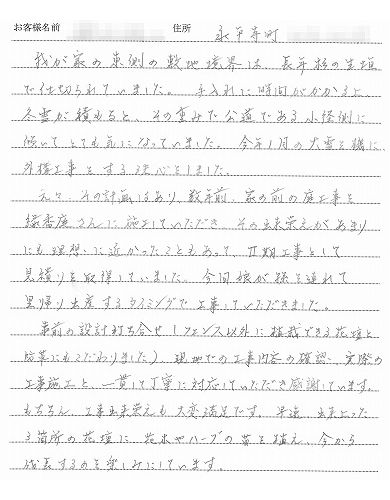 お客様名前 住所 永平寺町
我が家の東側の敷地境界は、長年杉の生垣
で仕切られていました。手入れに時間がかかる上、
冬雪が積もると、その重みで公道である小路側に
傾いてとても気になっていました。今年1月の大雪を機に
外構工事をする決心をしました。
元々、その計画はあり、数年前、家の前の庭工事を
緑香庭さんに施工していただき その出来栄えがあまり
にも理想に近かったこともあって、Ⅱ期工事として
見積りを取得していました。今回娘が孫を連れて
里帰り出産するタイミングで工事していただきました。
事前の設計打ち合せ(フェンス以外に植栽できる花壇と
防草にもこだわりました)、現地での工事内容の確認、実際の
工事施工と、一貫して丁寧に対応していただき感謝しています。
もちろん、工事出来栄えも大変満足です。早速、出来上った
3箇所の花壇に、花木やハーブの苗を植え、今から
成長するのを楽しみにしています。